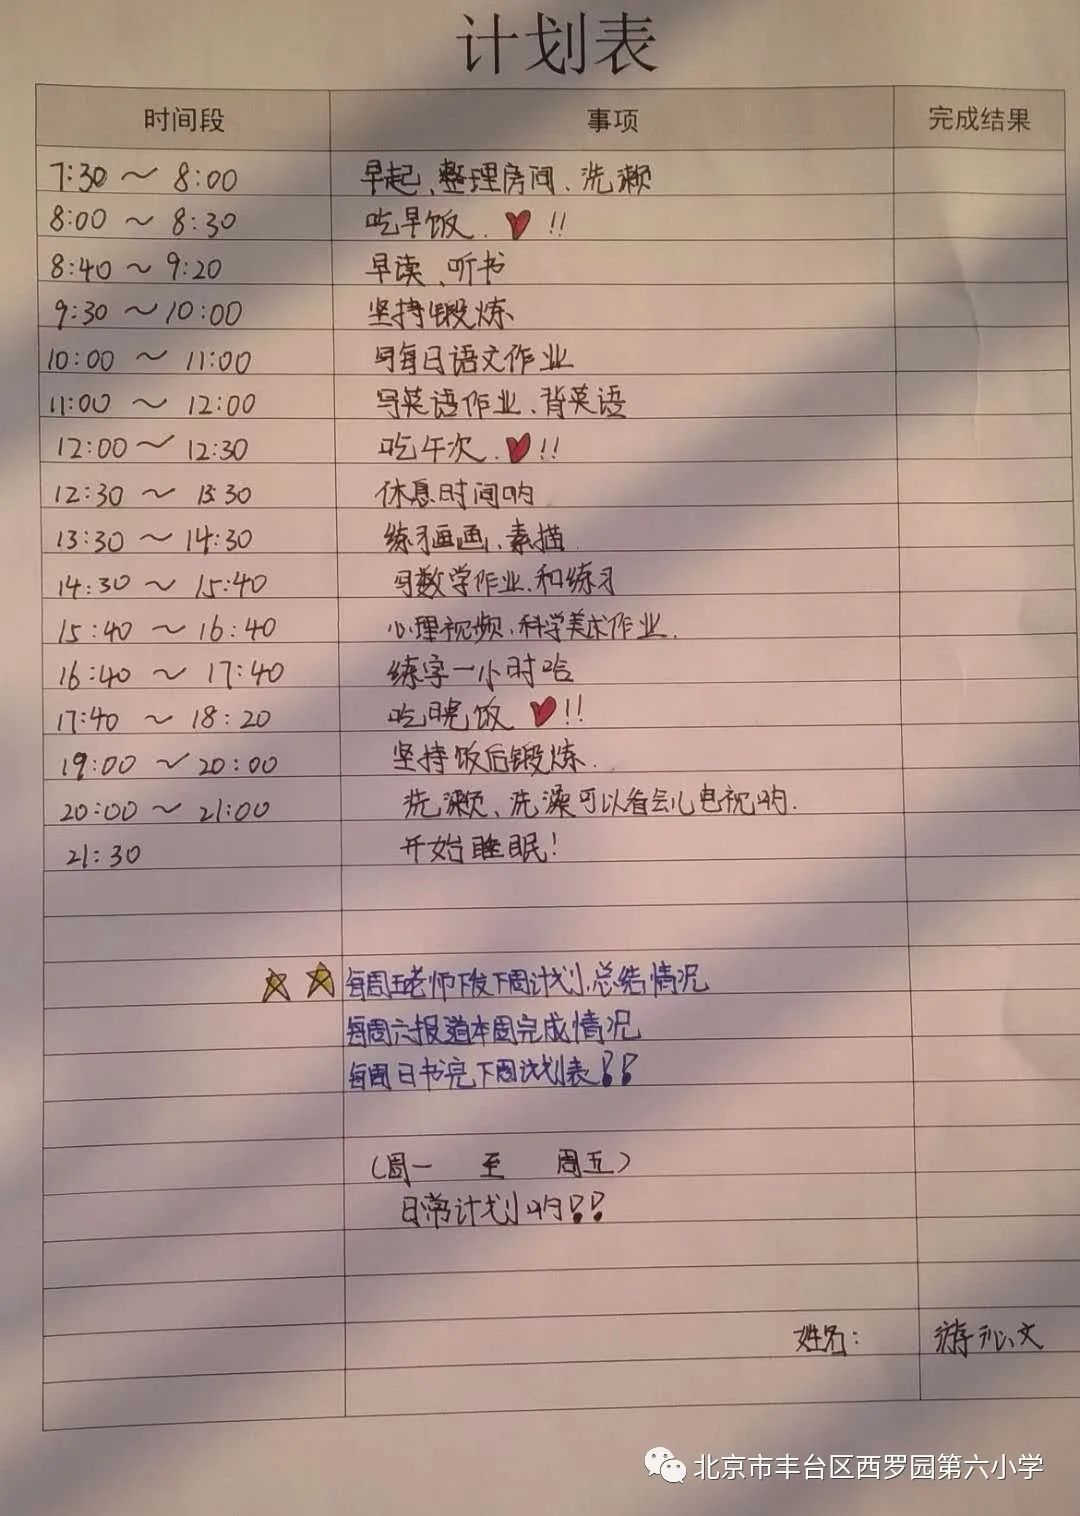 计划表
时间段 事项 完成结果
7:30 ～ 8:00 早起、整理房间、洗漱
8:00 ～ 8:30 吃早饭. !!
8:40 ～ 9:20 早读、听书
9:30 ～10:00 坚持锻炼
10:00 ～ 11:00 写每日语文作业
11:00 ～ 12:00 写英语作业、背英语
12:00～ 12:30 吃午次. !!
12:30 ～ 13:30 休息时间哟
13:30 ～ 14:30 练习画画、素描.
14:30 ～ 15:40 写数学作业、和练习
15:40 ～ 16:40 心理视频、科学美术作业.
16:40 ～ 17:40 练字一小时哈
17:40 ～ 18:20 吃晚饭 !!
19:00 ～20:00 坚持饭后锻炼.
20:00 ～ 21:00 洗漱、洗澡可以看会儿电视哟.
21:30 开始睡眠!
每周五老师下发下周计划,总结情况
每周六报道本周完成情况
每周日书完下周计划表!!
(周一 至 周五)
日常计划哟!!
姓名: 游沁文
北京市丰台区西罗园第六小学